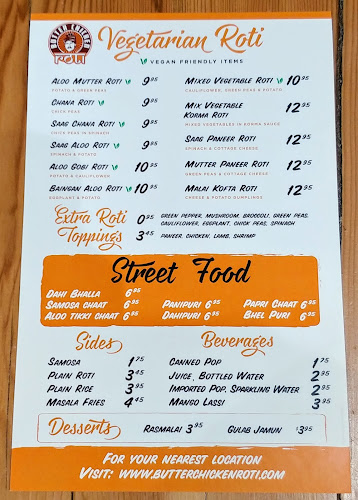 BUTTER CHICKEN
ROTI
Vegetarian Roti
VEGAN FRIENDLY ITEMS
ALOO MUTTER ROTI 9.95
POTATO & GREEN PEAS
CHANA ROTI 9.95
CHICK PEAS
SAAG CHANA ROTI 9.95
CHICK PEAS IN SPINACH
SAAG ALOO ROTI 9.95
SPINACH & POTATO
ALOO GOBI ROTI 10.95
POTATO & CAULIFLOWER
BAINGAN ALOO ROTI 10.95
EGGPLANT & POTATO
MIXED VEGETABLE ROTI 10.95
CAULIFLOWER, GREEN PEAS & POTATO
MIX VEGETABLE
KORMA ROTI 12.95
MIXED VEGETABLES IN KORMA SAUCE
SAAG PANEER ROTI 12.95
SPINACH & COTTAGE CHEESE
MUTTER PANEER ROTI 12.95
GREEN PEAS & COTTAGE CHEESE
MALAI KOFTA ROTI 12.95
CHEESE & POTATO DUMPLINGS
Extra Roti
Toppings
0.95 GREEN PEPPER, MUSHROOM, BROCCOLI, GREEN PEAS,
CAULIFLOWER, EGGPLANT, CHICK PEAS, SPINACH
3.45 PANEER, CHICKEN, LAMB, SHRIMP
Street Food
DAHI BHALLA 6.95
SAMOSA CHAAT 6.95 PANIPURI 6.95 PAPRI CHAAT 6.95
ALOO TIKKI CHAAT 6.95 DAHIPURI 6.95 BHEL PURI 6.95
Sides
SAMOSA 1.75
PLAIN ROTI 3.45
PLAIN RICE 3.95
MASALA FRIES 4.45
Beverages
CANNED POP 1.75
JUICE, BOTTLED WATER 2.95
IMPORTED POP, SPARKLING WATER 2.95
MANGO LASSI 3.95
Desserts RASMALAI 3.95 GULAB JAMUN $3.95
FOR YOUR NEAREST LOCATION
VISIT: WWW.BUTTERCHICKENROTI.COM